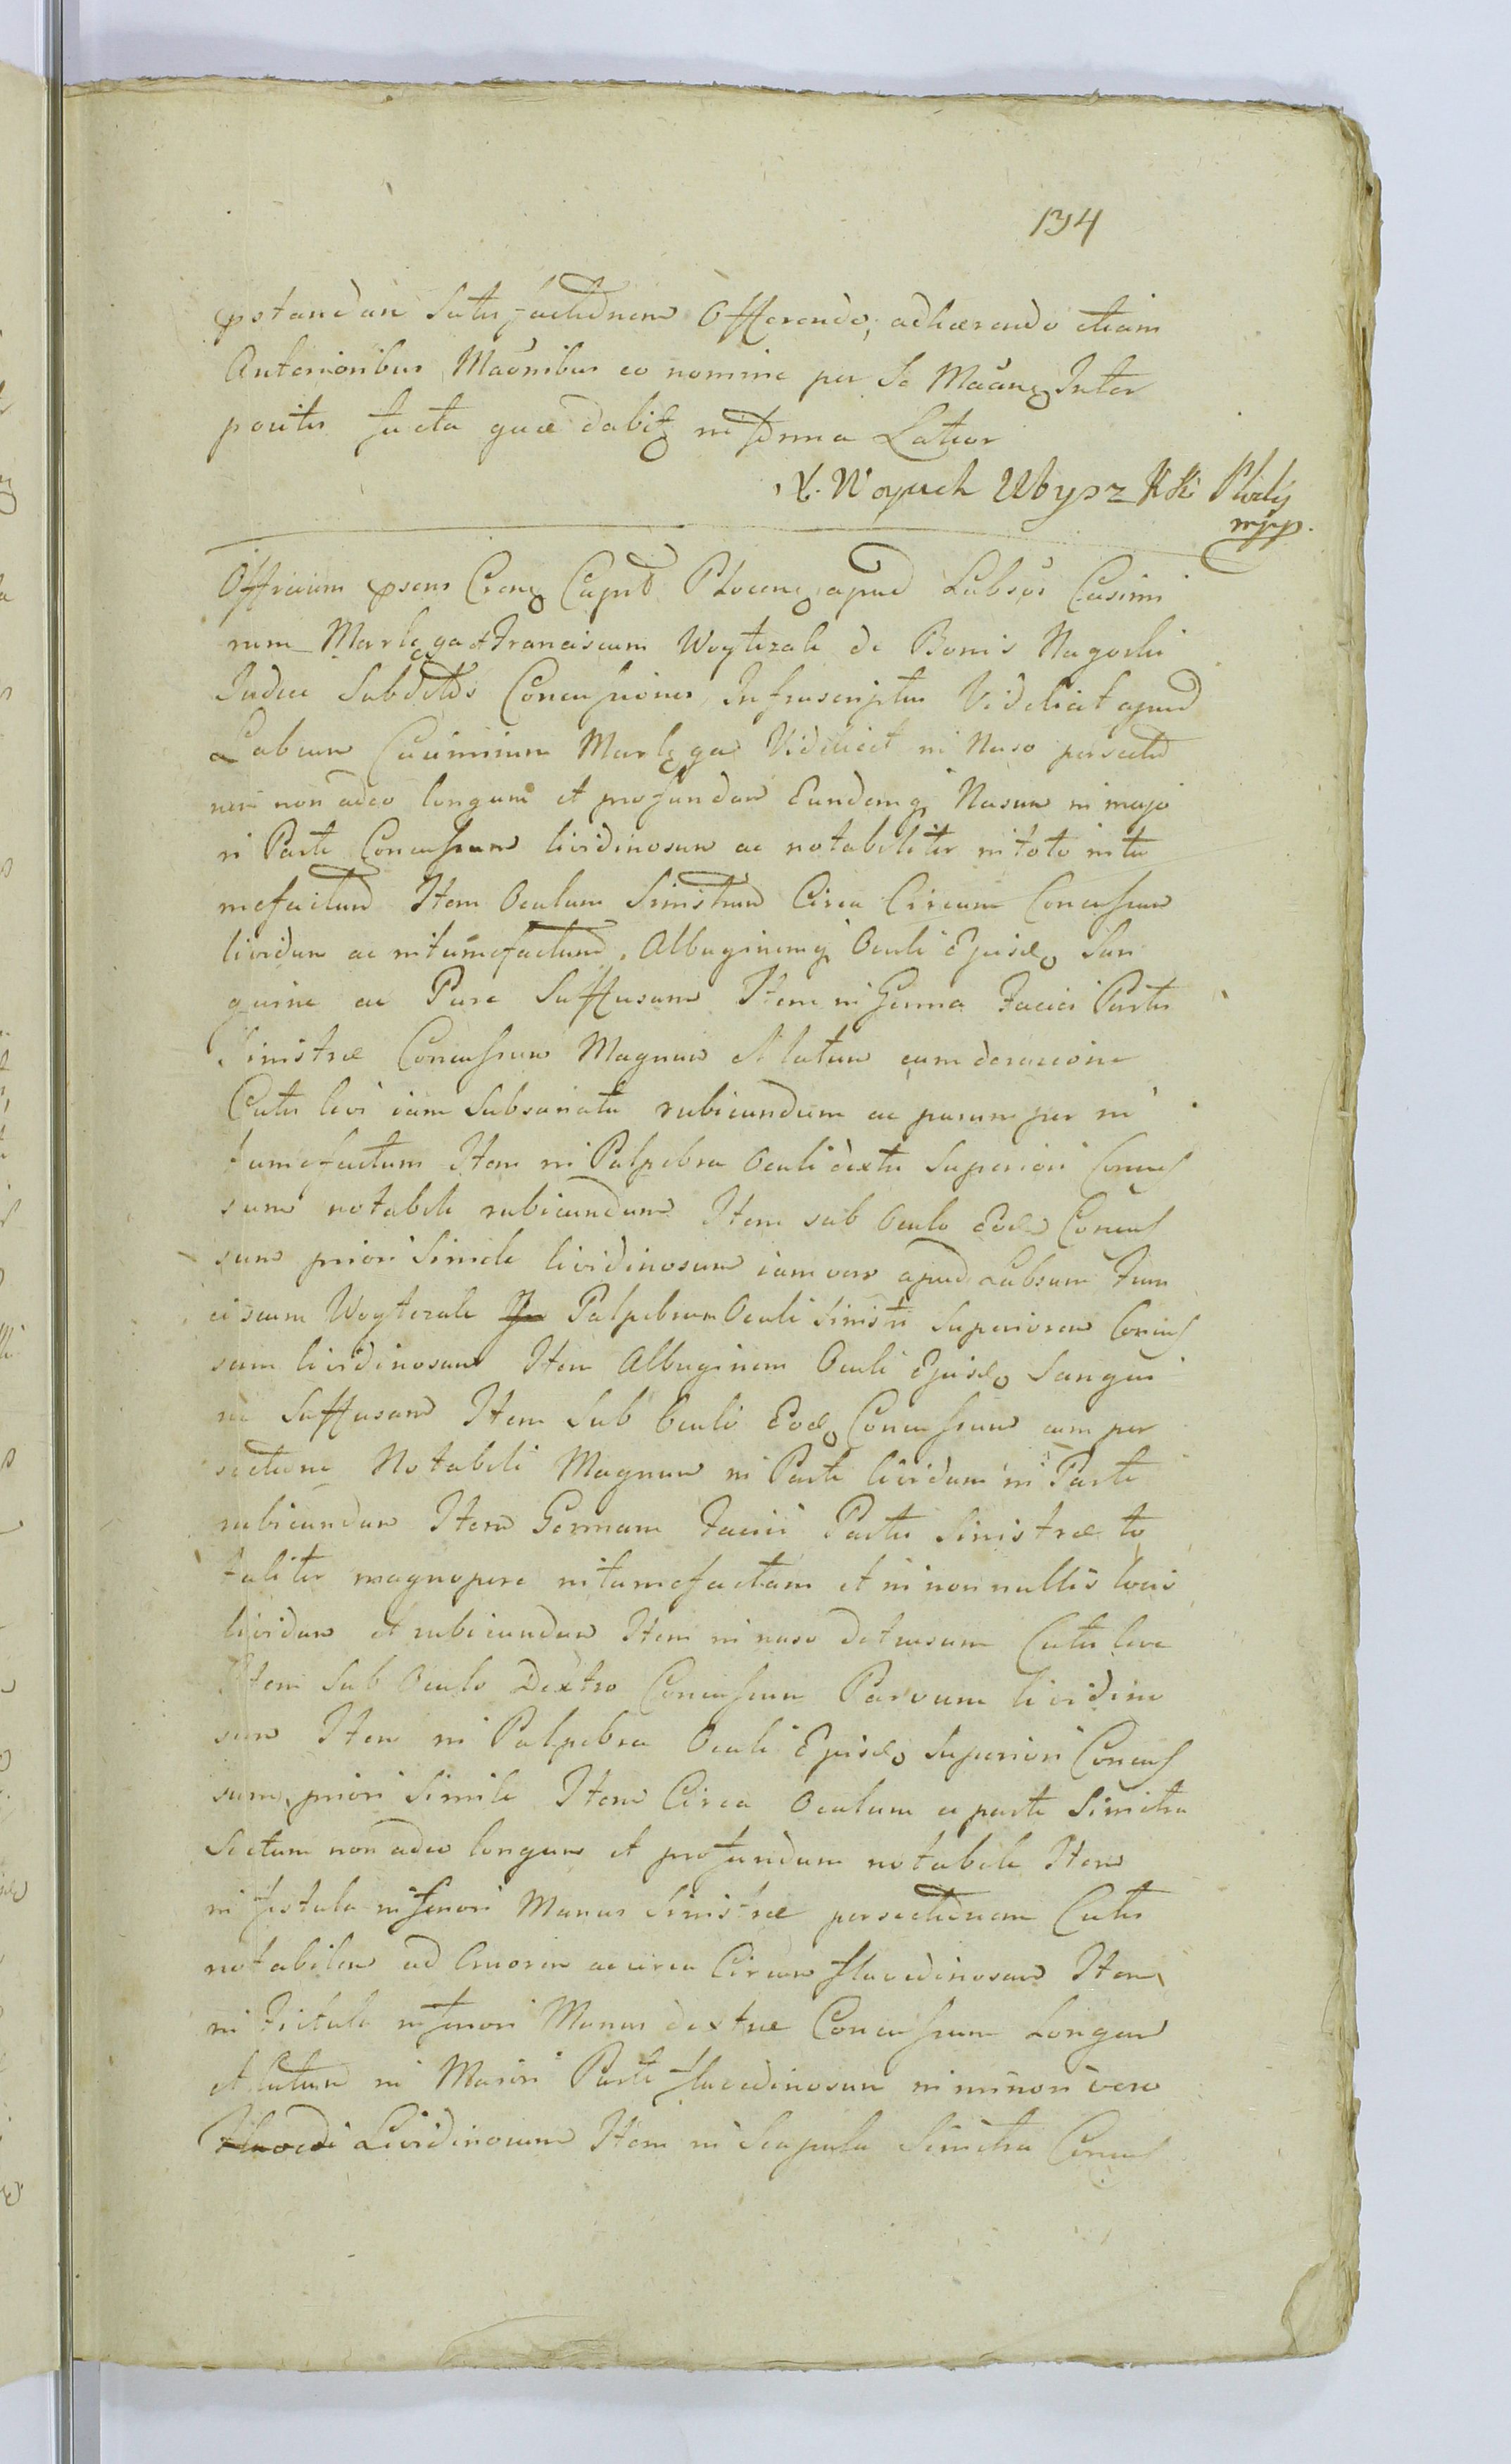 134
pstandam Satisfactionem Offerendo, adhærendo etiam
Anterioribus Maonibus eo nomine per Se Maanq Inter
positis facta quæ dabitq in forma Latior
X. Woyciech Ubysz
mpp.
Officium psens Crenq Capit Plocenq apud Labsos Casimi
rum Marlęga et Franciscum Woytczak de Bonis Nagorki
Subditos Concussiones Infrascriptas Videlicet apud
Labsum Casimirum Marlęga Videlicet in Naso persectio
nem non adeo longam et profundam Eundemq Nasum in majo
ri Parte Concussum lividinosum ac notabiliter in toto intu
mefactum Item Oculum Sinistrum Circa Circum Concussum
lividum ac intumefactum, Albuginemq Oculi Ejusd San
guine ac Pure Suffusam Item in Genna Faciei Partis
Sinistræ Concussum Magnum et latum cum derasione
Cutis levi iam Subsanata rubicundum ac parumper in
tumefactum Item in Palpebra Oculi dextri Superiori Concus
sum notabile rubicundum Item sub Oculo Eod Concus
sum priori Simile lividinosum iam vero apud Labsum Fran
ciscum Woytczak Palpebram Oculi Sinistri Superiorem Concus
sam lividinosam Item Albuginem Oculi Ejusd Sangui
ne Suffusam Item Sub Oculo Eod Concussum cum per
sectione Notabili Magnum in Parte lividum in Parte
rubicundum Item Gennam Faciei Partis Sinistræ to
taliter magnopere intumefactam et in non nullis locis
lividam et rubicundam Item in naso detrusum Cutis leve
Item Sub Oculo Dextro Concussum Parvum lividino
sum Item in Palpebra Oculi Ejusd Superiori Concus
sum priori Simile Item Circa Oculum a parte Sinistra
Sectum non adeo longum et profundum notabile Item
in fistula inferiori Manus Sinistræ persectionem Cutis
notabilem ad Cruorem ac circa Circum flavedinosam Item
in Fistula inferiori Manus dextræ Concussum Longum
et latum in Maiori Parte flavedinosum in minori vero
Flavedi Lividinosum Item in Scapula Sinistra Concus